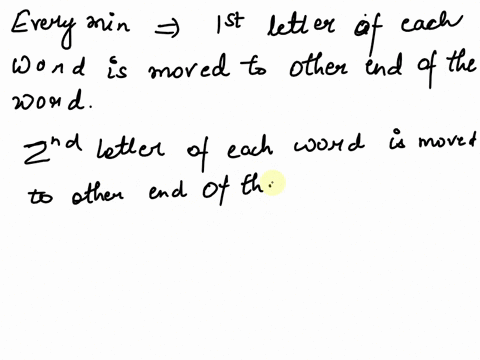 Every min ⇒ 1st letter of each
word is moved to other end of the
word.
2nd letter of each word is moved
to other end of th